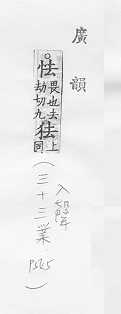 廣韻
怯畏也去劫切九㹤上同
入聲
(三十三業)